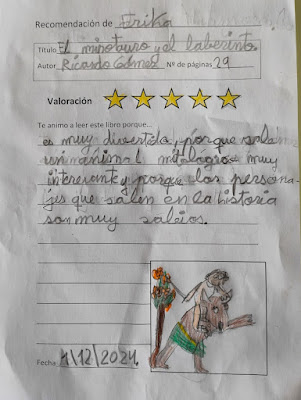 Recomendación de Erika
Título El minotauro y el laberinto.
Autor Ricardo Gómez Nº de páginas 29
Valoración
Te animo a leer este libro porque...
es muy divertida, porque sale
un animal mitologico muy
interesante y porque los persona-
jes que salen en la historia
son muy sabios.
Fecha 1/12/2024.